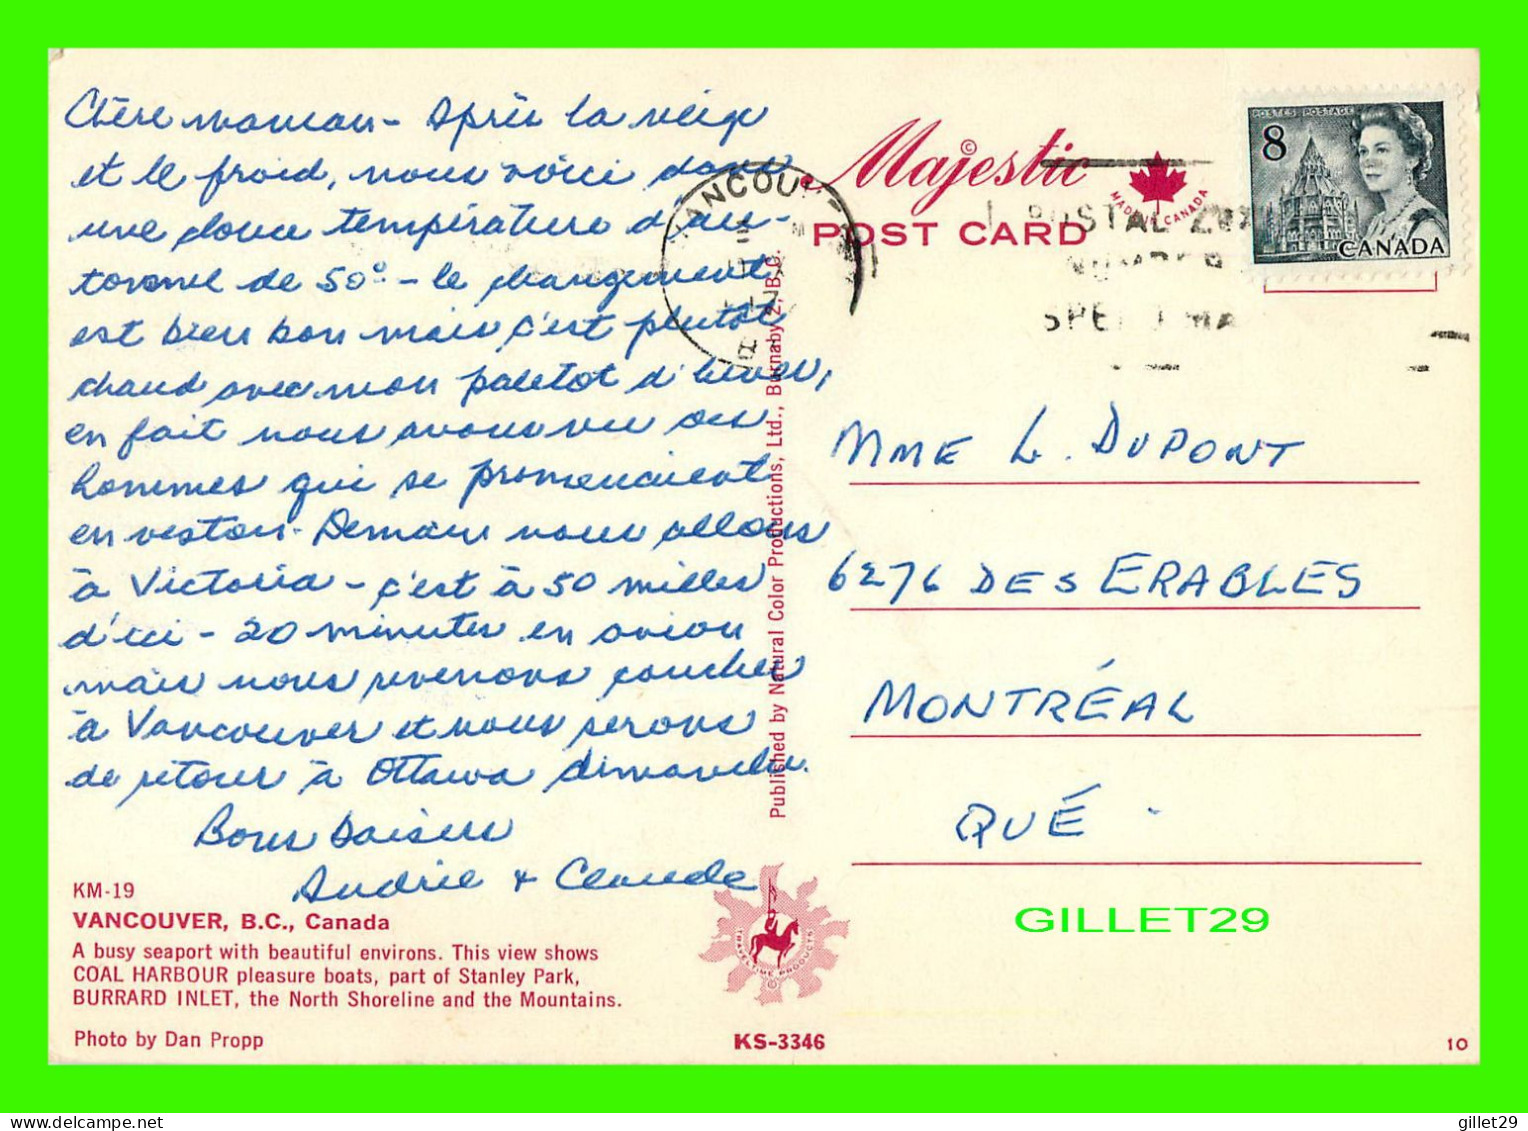 Chère maman - Après la neige
et le froid, nous voici dans
une douce température d'au-
tomne de 50° - le changement
est bien bon mais c'est plutôt
chaud avec mon paletot d'hiver,
en fait nous avons vu des
hommes qui se promenaient
en veston. Demain nous allons
à Victoria - c'est à 50 milles
d'ici - 20 minutes en avion
mais nous revenons coucher
à Vancouver et nous serons
de retour à Ottawa dimanche.
Bons Baisers
Andrée & Claude
KM-19
VANCOUVER, B.C., Canada
A busy seaport with beautiful environs. This view shows
COAL HARBOUR pleasure boats, part of Stanley Park,
BURRARD INLET, the North Shoreline and the Mountains.
Photo by Dan Propp
Published by Natural Color Productions, Ltd., Burnaby 2, B.C.
TRAVELTIME PRODUCTS
KS-3346
Majestic ©
POST CARD
MADE IN CANADA
POSTES POSTAGE
8
CANADA
VANCOUVER
POSTAL
MME L. DUPONT
6276 DES ERABLES
MONTRÉAL
QUÉ.
GILLET29
10
gillet29